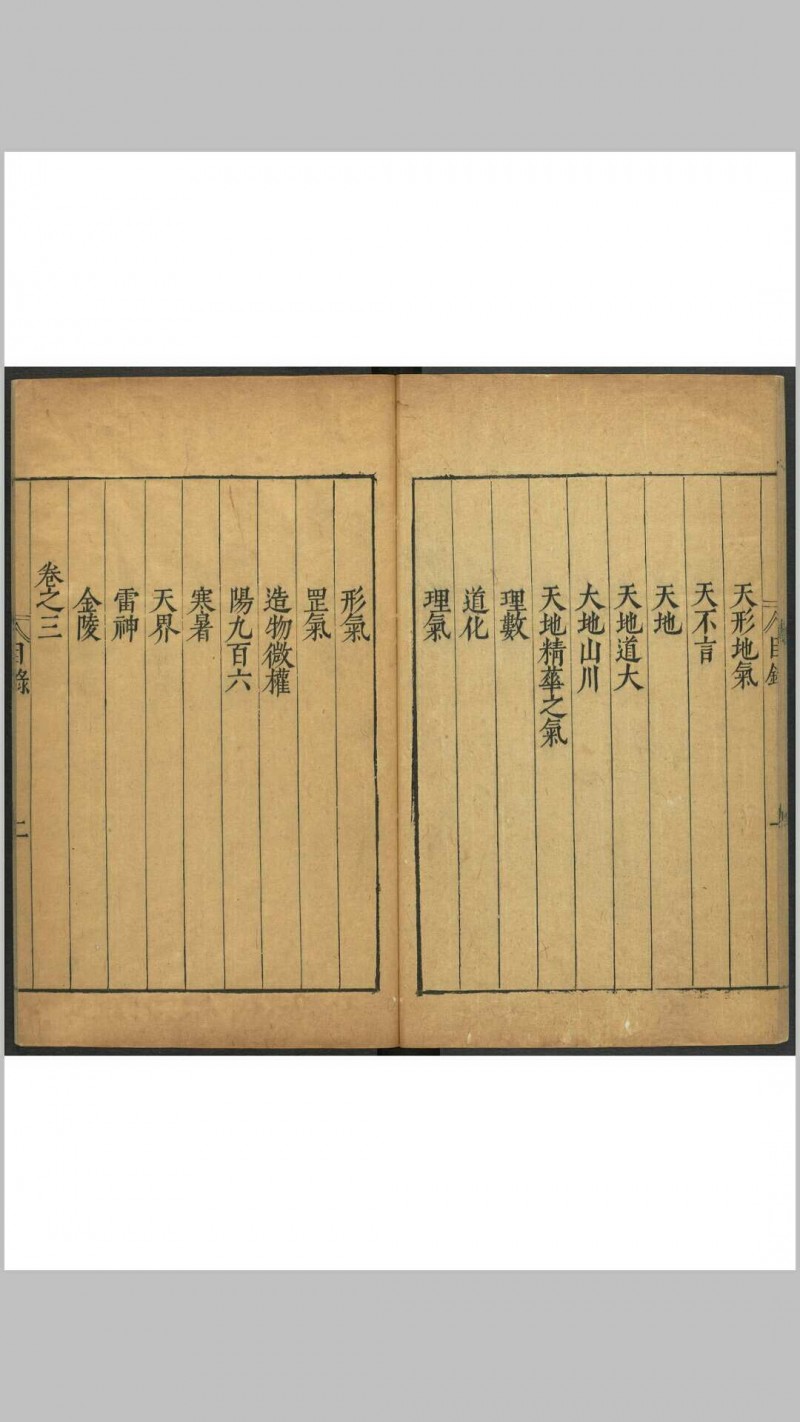 目錄
一
天形地氣
天不言
天地
天地道大
大地山川
天地精華之氣
理數
道化
理氣
形氣
罡氣
造物微權
陽九百六
寒暑
天界
雷神
金陵
卷之三
目錄
二